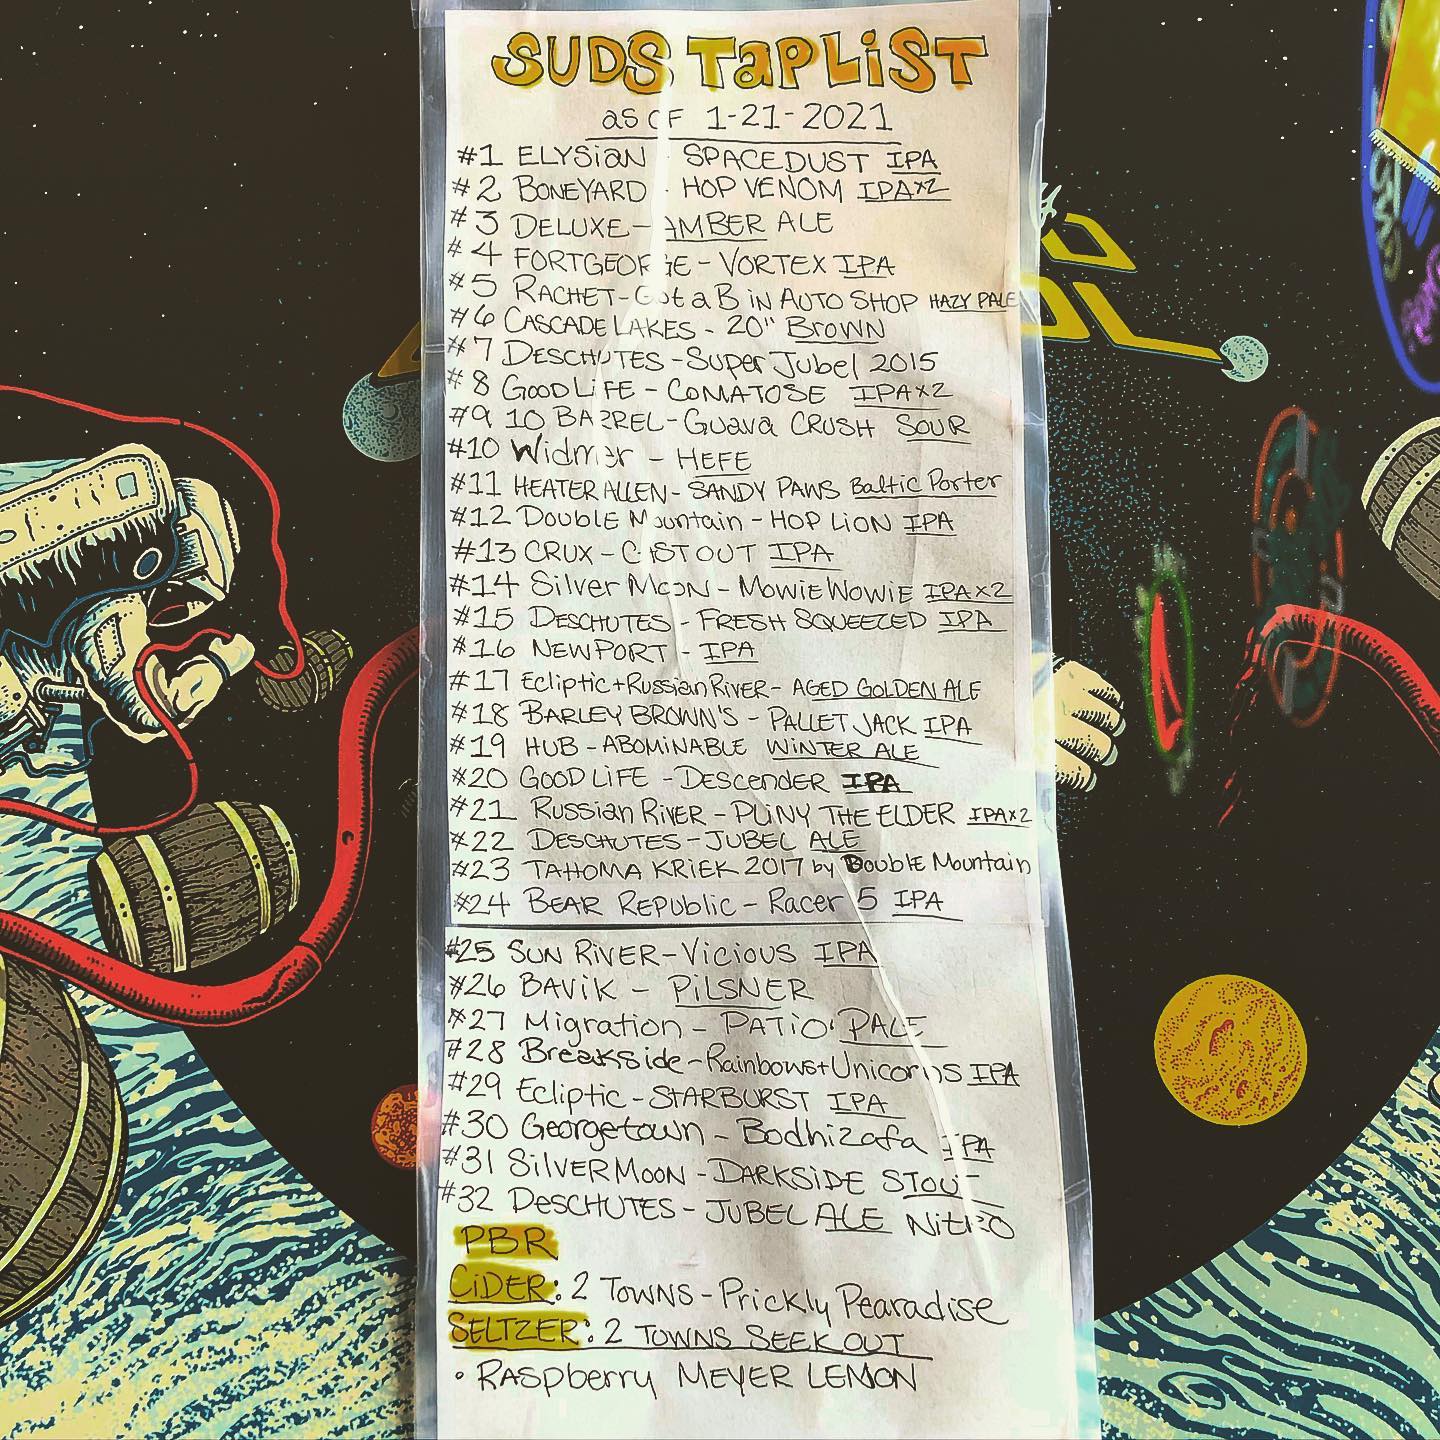 SUDS TaPLiST
as OF 1-21-2021
#1 ELYSiaN - SPACEDUST IPA
#2 BONEYARD - HOP VENOM IPAX2
#3 DELUXE - AMBER ALE
#4 FORTGEORGE - VORTEX IPA
#5 RACHET - Got a B iN AUTO SHOP HAZY PALE
#6 CASCADE LAKES - 20" BROWN
#7 DESCHUTES - Super Jubel 2015
#8 GOOD LiFE - COMATOSE IPAX2
#9 10 BARREL - Guava CRUSH SOUR
#10 Widmer - HEFE
#11 HEATER ALLEN - SANDY PAWS Baltic Porter
#12 Double Mountain - HOP LiON IPA
#13 CRUX - CAST OUT IPA
#14 Silver Moon - MowiE WowiE IPAX2
#15 DESCHUTES - FRESH SQUEEZED IPA
#16 NEWPORT - IPA
#17 Ecliptic + Russian River - AGED GOLDEN ALE
#18 BARLEY BROWN'S - PALLET JACK IPA
#19 HUB - ABOMiNABLE WINTER ALE
#20 GOOD LiFE - Descender IPA
#21 Russian River - PLINY THE ELDER IPAX2
#22 DESCHUTES - JUBEL ALE
#23 TAHOMA KRiEK 2017 by Double Mountain
#24 BEAR REPUBLiC - Racer 5 IPA
#25 SUN RiVER - Vicious IPA
#26 BAViK - PiLSNER
#27 Migration - PATiO PALE
#28 Breakside - Rainbows + Unicorns IPA
#29 Ecliptic - STARBURST IPA
#30 Georgetown - Bodhizafa IPA
#31 SilVER MOON - DARKSiDE STOUT
#32 DESCHUTES - JUBEL ALE NitRO
PBR
CiDER: 2 TOWNS - Prickly Pearadise
SELTZER: 2 TOWNS SEEK OUT
• RASpberry MEYER LEMON